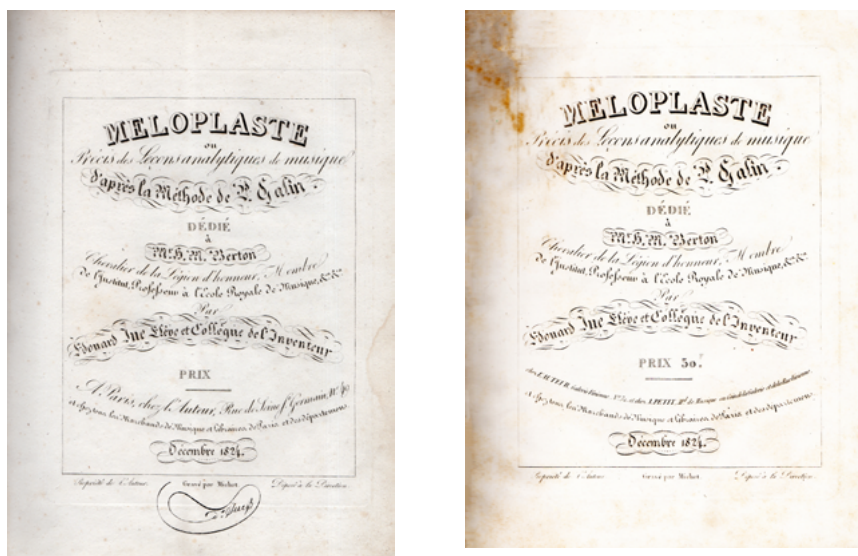 MELOPLASTE
ou
Précis des Leçons analytiques de musique
d'après la Méthode de P. Galin.
DÉDIÉ
à
Mr. H. M. Berton
Chevalier de la Légion d'honneur, Membre
de l'Institut, Professeur à l'école Royale de Musique, &c &c
Par
Edouard Jue Elève et Collègue de l'Inventeur
PRIX
A Paris, chez l'Auteur, Rue de Seine St Germain, No
et chez tous les Marchands de Musique et Libraires de Paris et des départemens.
Décembre 1824.
Propriété de l'Auteur. Gravé par Michot Déposé à la Direction.
MELOPLASTE
ou
Précis des Leçons analytiques de musique
d'après la Méthode de P. Galin.
DÉDIÉ
à
Mr. H. M. Berton
Chevalier de la Légion d'honneur, Membre
de l'Institut, Professeur à l'école Royale de Musique, &c &c
Par
Edouard Jue Elève et Collègue de l'Inventeur
PRIX 30f
chez L'AUTEUR, et chez A. PETIT, Md de Musique
et chez tous les Marchands de Musique et Libraires de Paris et des départemens.
Décembre 1824.
Propriété de l'Auteur. Gravé par Michot Déposé à la Direction.